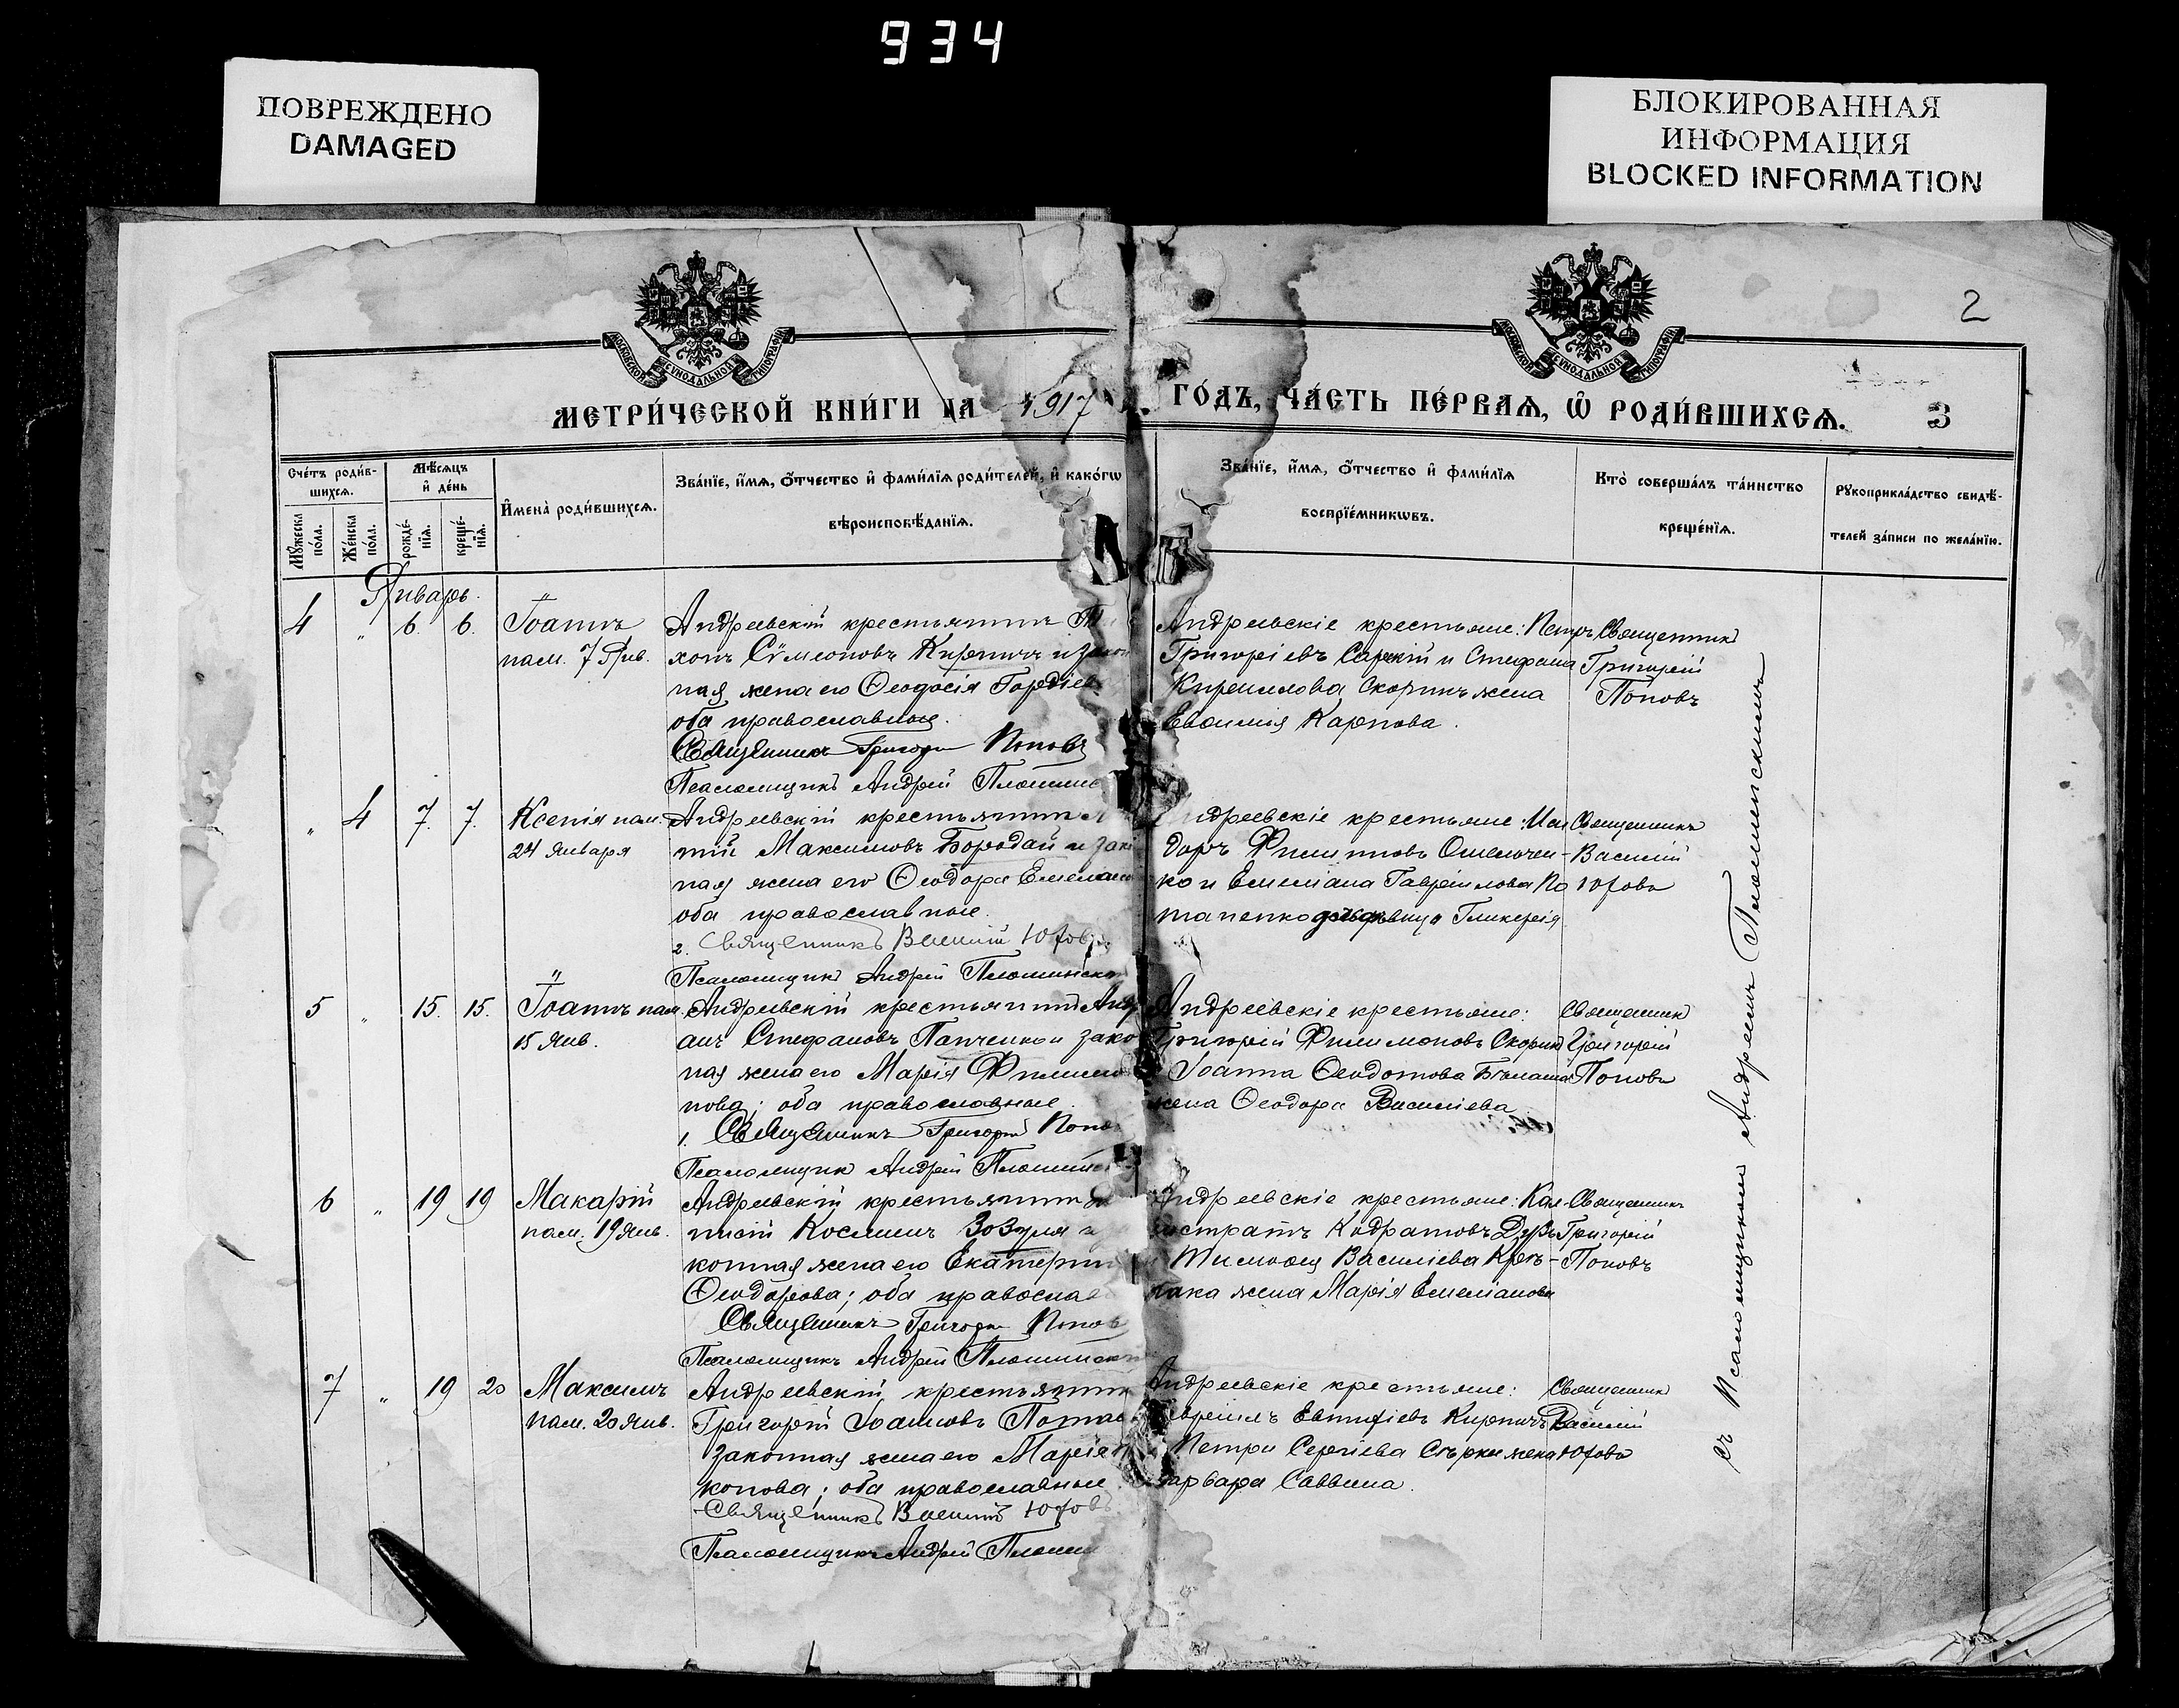 934
ПОВРЕЖДЕНО
DAMAGED
БЛОКИРОВАННАЯ
ИНФОРМАЦИЯ
BLOCKED INFORMATION
МОСКОВСКОЙ СѴНОДАЛЬНОЙ ТИПОГРАФІИ
МОСКОВСКОЙ СѴНОДАЛЬНОЙ ТИПОГРАФІИ
2
МЕТРИ́ЧЕСКОЙ КНИ́ГИ НА 1917 ГО́ДЪ, ЧА́СТЬ ПЕ́РВАѦ, Ѽ РОДИ́ВШИХСѦ.
3
Сче́тъ роди́в-
шихсѧ.
Мꙋ́жеска по́ла.
Же́нска по́ла.
Мѣ́сѧцъ
и҆ де́нь
рожде́-
нїѧ.
креще́-
нїѧ.
И҆мена̀ роди́вшихсѧ.
Зва́нїе, и҆́мѧ, ѻ҆́тчество и҆ фами́лїѧ роди́телей, и҆ како́гѡ
вѣроисповѣ́данїѧ.
Зва́нїе, и҆́мѧ, ѻ҆́тчество и҆ фами́лїѧ
воспрїе́мникѡвъ.
Кто̀ соверша́лъ та́инство
креще́нїѧ.
Рꙋкоприкла́дство свидѣ́-
телей за́писи по жела́нїю.
Январь.
4 " 6. 6. Іоаннъ
пам. 7 Янв.
Андреевскій крестьянинъ Ти
хонъ Сѵмеоновъ Кирпичъ и закон
ная жена его Ѳеодосія Гордіев
оба православные.
Священникъ Григорій Поповъ
Псаломщикъ Андрей Пломинс
Андреевскіе крестьяне: Петръ
Григоріевъ Сарскій и Стефана
Кириллова Скорикъ жена
Евфимія Карпова.
Священникъ
Григорій
Поповъ
" 4 7. 7. Ксенія пам.
24 Января
Андреевскій крестьянинъ
тій Максимовъ Бородай и зако
ная жена его Ѳеодора Емелиан
оба православные.
2. Священникъ Василій Юфовъ
Псаломщикъ Андрей Пломинскій
Андреевскіе крестьяне: Иси
доръ Филипповъ Омельчен-
ко и Емеліана Гавріилова По
тапенко Гликерія
Священникъ
Василій
Юфовъ
5 " 15. 15. Іоаннъ пам.
15 Янв.
Андреевскій крестьянинъ
анъ Стефановъ Панченко и зако
ная жена его Марія Филимо
нова; оба православные.
1. Священникъ Григорій Попо
Псаломщикъ Андрей Пломинс
Андреевскіе крестьяне:
Григорій Филимоновъ Скорик
Іоанна Ѳеодотова
жена Ѳеодора Василіева.
Священник
Григорій
Поповъ
6 " 19 19 Макарій
пам. 19 Янв.
Андреевскій крестьянинъ
нисій Космин Зозуля и
конная жена его Екатерин
Ѳеодорова; оба православ
Священникъ Григорій Попов
Псаломщикъ Андрей Пломинскій
Андреевскіе крестьяне: Кал-
листратъ Кодратовъ
Тимоѳея Василіева
жена Марія Емеліанова
Священникъ
Григорій
Поповъ
7 " 19 20 Максимъ
пам. 20 Янв.
Андреевскій крестьянинъ
Григорій Іоанновъ Потап
законная жена его Марія
конова; оба православные.
Священникъ Василій Юфовъ
Псаломщикъ Андрей Пломин
Андреевскіе крестьяне:
Гавріилъ Евтихіевъ Кирпичъ
Петра Сергіева жена
Варвара Саввина.
Священник
Василій
Юфовъ
съ Псаломщикомъ Андреемъ Пломинскимъ